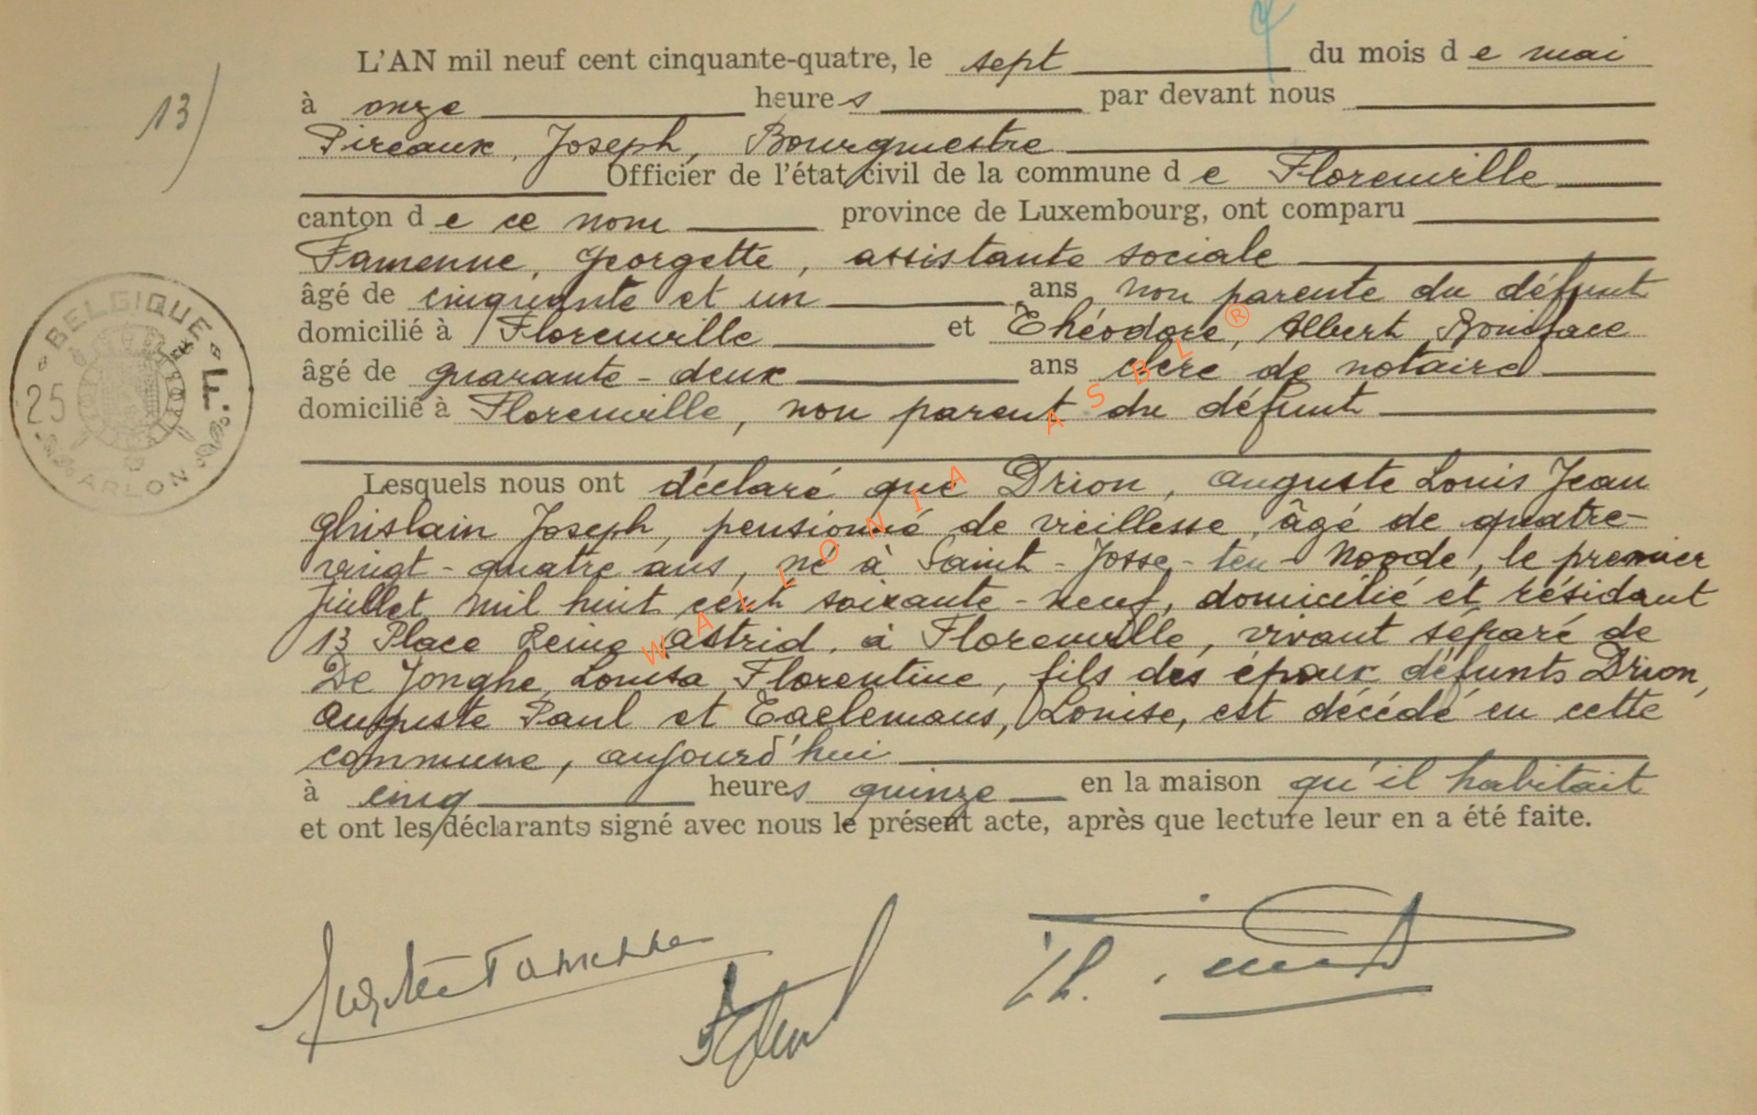 L'AN mil neuf cent cinquante-quatre, le sept du mois de mai
13)
à onze heures par devant nous
Pireaux, Joseph, Bourgmestre
Officier de l'état civil de la commune de Florenville
canton de ce nom province de Luxembourg, ont comparu
Famenne, Georgette, assistante sociale
âgé de cinquante et un ans non parente du défunt
domicilié à Florenville et Théodore, Albert, Boniface
âgé de quarante-deux ans clerc de notaire
domicilié à Florenville, non parent du défunt
Lesquels nous ont déclaré que Drion, Auguste Louis Jean
Ghislain Joseph, pensionné de vieillesse, âgé de quatre-
vingt-quatre ans, né à Saint-Josse-ten-Noode, le premier
juillet mil huit cent soixante-neuf, domicilié et résidant
13 Place Reine Astrid, à Florenville, vivant séparé de
De Jonghe, Louisa, Florentine, fils des époux défunts Drion,
Auguste Paul et Taelemans, Louise, est décédé en cette
commune, aujourd'hui
à cinq heures quinze en la maison qu'il habitait
et ont les déclarants signé avec nous le présent acte, après que lecture leur en a été faite.
BELGIQUE
25 Fr
ARLON
WALLONIA ASBL ®